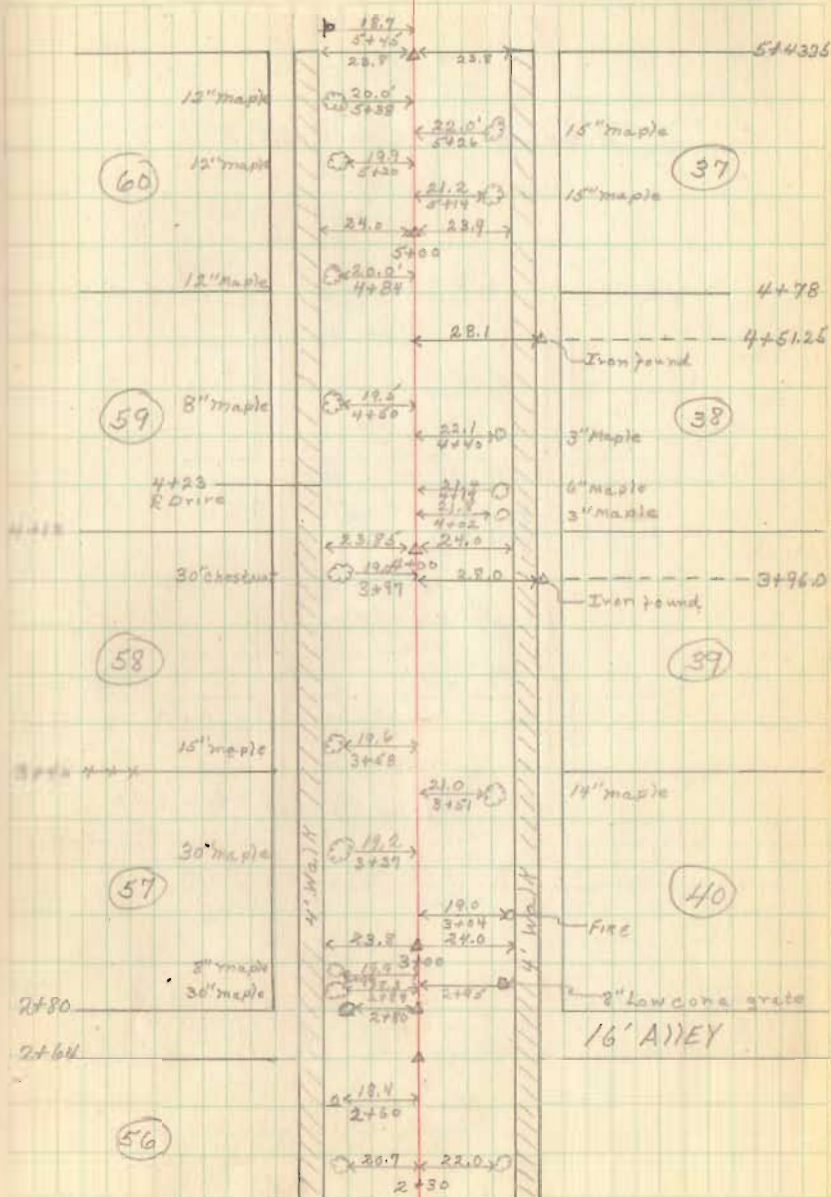 18.7
5+45
23.8 23.8 5+43.35
12" maple 20.0' 5+38
22.0' 5+26 15" maple
60 12" maple 19.9 5+20 37
21.2 5+14 15" maple
24.0 23.9
5+00
12" Maple 20.0' 4+84
4+78
28.1 4+51.25
Iron found
59 8" maple 19.5 38
22.1 4+40 3" Maple
4+23
℄ Drive
6" Maple
21.8 4+02 3" Maple
23.85 24.0
4+00
30" Chestnut 3+97 28.0 3+96.0
Iron found
58 39
15" maple 19.6 3+58
21.0 3+51 14" maple
30" maple 19.2 3+37
57 40
4' Walk 4' Walk
19.0 3+04 Fire
23.8 24.0
3+00
8" maple
30" maple 2+95 8" Low conc grate
2+80 2+80
16' Alley
2+64
18.4
2+50
56
20.7 22.0
2+30